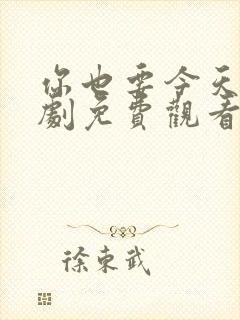 你也要今天
劇免費觀看
徐東武